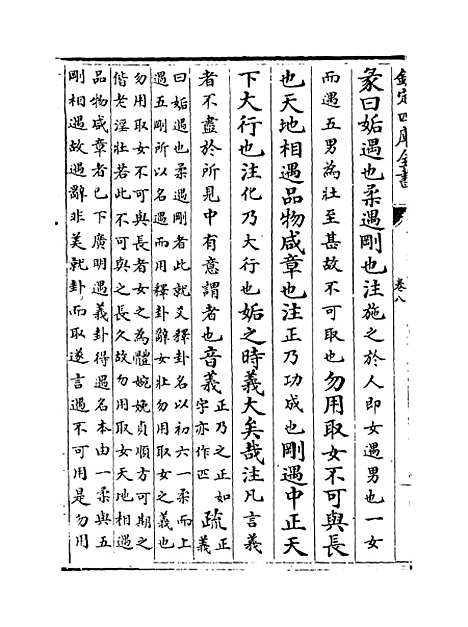 欽定四庫全書
卷八
彖曰姤遇也柔遇剛也注施之於人即女遇男也一女
而遇五男為壯至甚故不可取也勿用取女不可與長
也天地相遇品物咸章也注正乃功成也剛遇中正天
下大行也注化乃大行也姤之時義大矣哉注凡言義
者不盡於所見中有意謂者也音義
正乃之正如
字亦作匹
疏正
義
曰姤遇也柔遇剛者此就爻釋卦名以初六一柔而上
遇五剛所以名遇而用釋卦辭女壯勿用取女之義也
勿用取女不可與長者女之為體婉娩貞順方可期之
偕老淫壯若此不可與之長久故勿用取女天地相遇
品物咸章者已下廣明遇義卦得遇名本由一柔與五
剛相遇故遇辭非美就卦而取遂言遇不可用是勿用